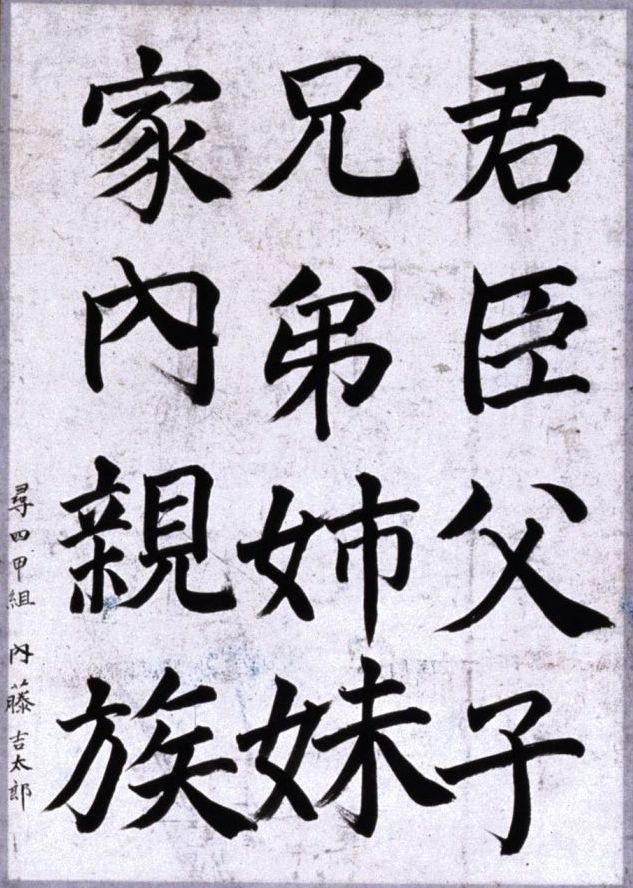 君臣父子
兄弟姉妹
家内親族
尋四甲組 内藤吉太郎